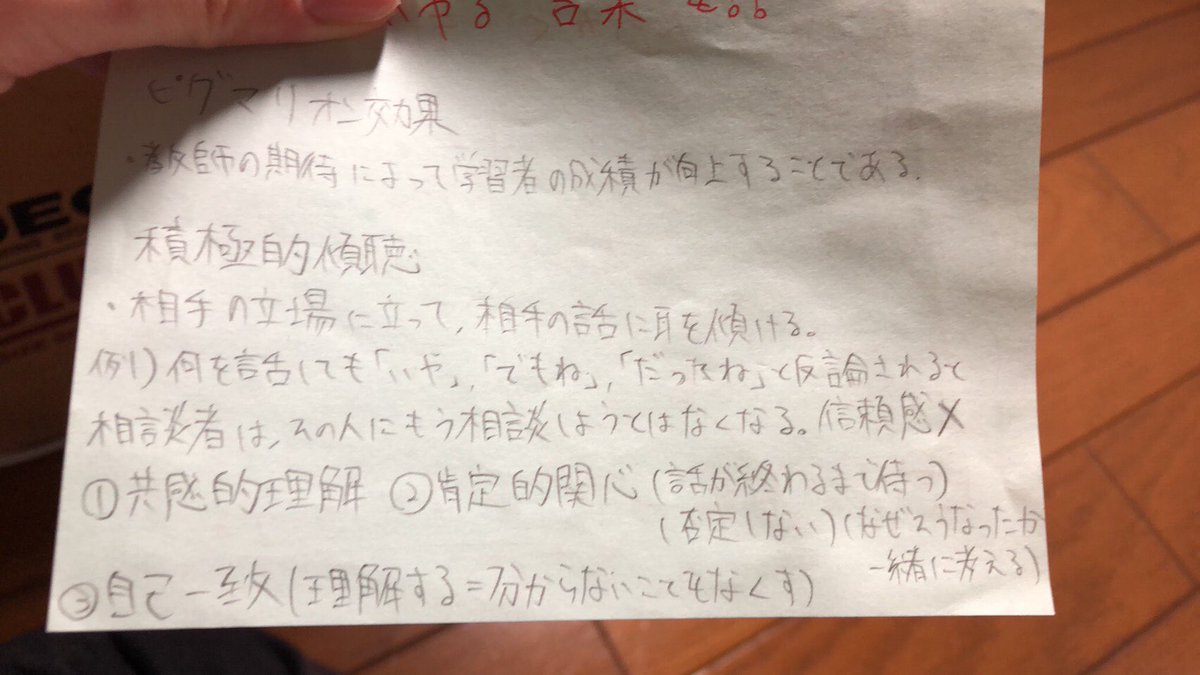 ピグマリオン効果
・教師の期待によって学習者の成績が向上することである。
積極的傾聴
・相手の立場に立って、相手の話に耳を傾ける。
例)何を話しても「いや」、「でもね」、「だったね」と反論されると
相談者は、その人にもう相談しようとはなくなる。信頼感×
①共感的理解 ②肯定的関心(話が終わるまで待つ)
(否定しない)(なぜそうなったか
一緒に考える)
③自己一致(理解する=分からないことをなくす)